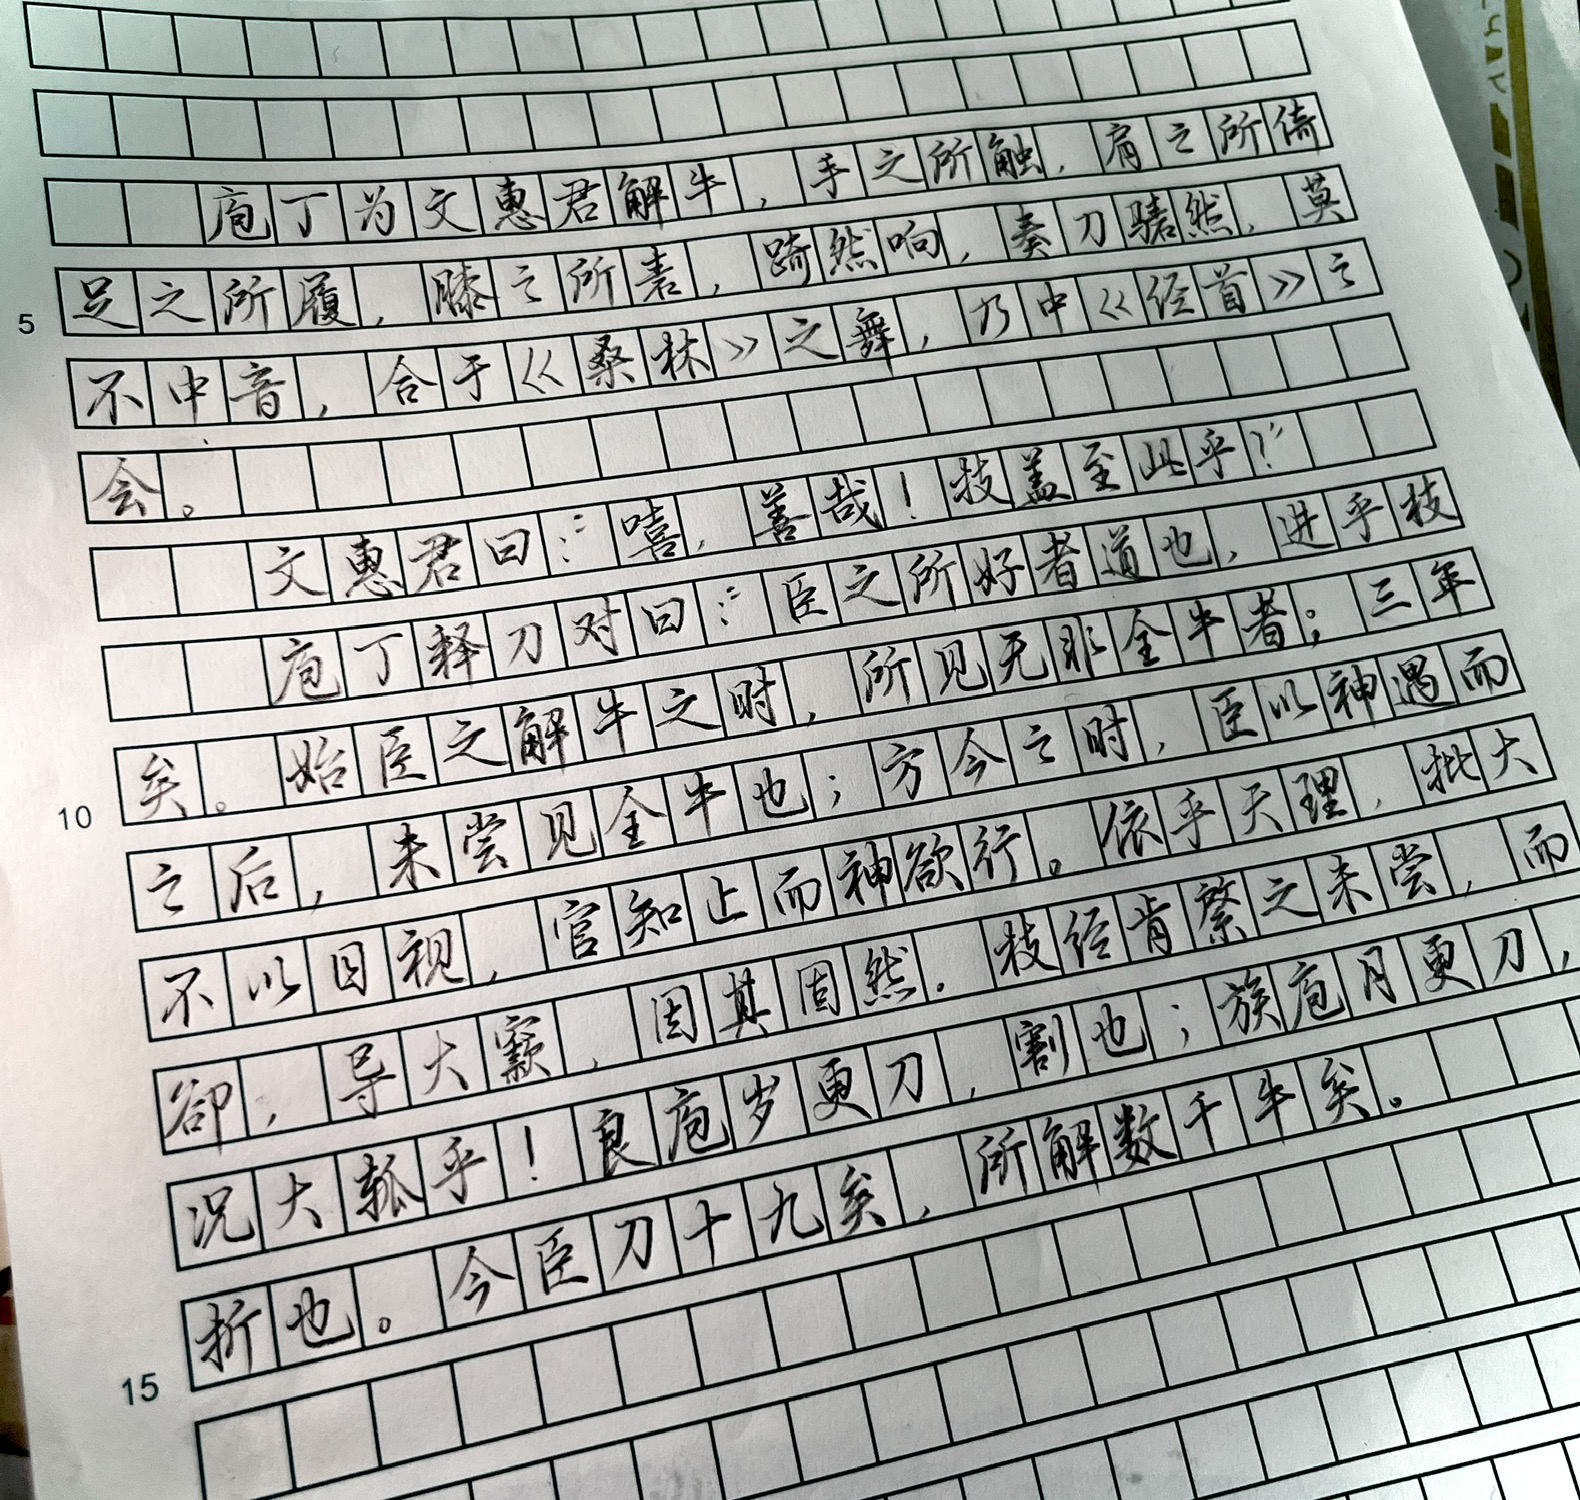 庖丁为文惠君解牛，手之所触，肩之所倚
5 足之所履，膝之所砉，踦然响，奏刀騞然，莫
不中音，合于《桑林》之舞，乃中《经首》之
会。
文惠君曰：“嘻，善哉！技盖至此乎？”
庖丁释刀对曰：“臣之所好者道也，进乎技
10 矣。始臣之解牛之时，所见无非全牛者；三年
之后，未尝见全牛也；方今之时，臣以神遇而
不以目视，官知止而神欲行。依乎天理，批大
郤，导大窾，因其固然。技经肯綮之未尝，而
况大軱乎！良庖岁更刀，割也；族庖月更刀，
15 折也。今臣刀十九矣，所解数千牛矣。